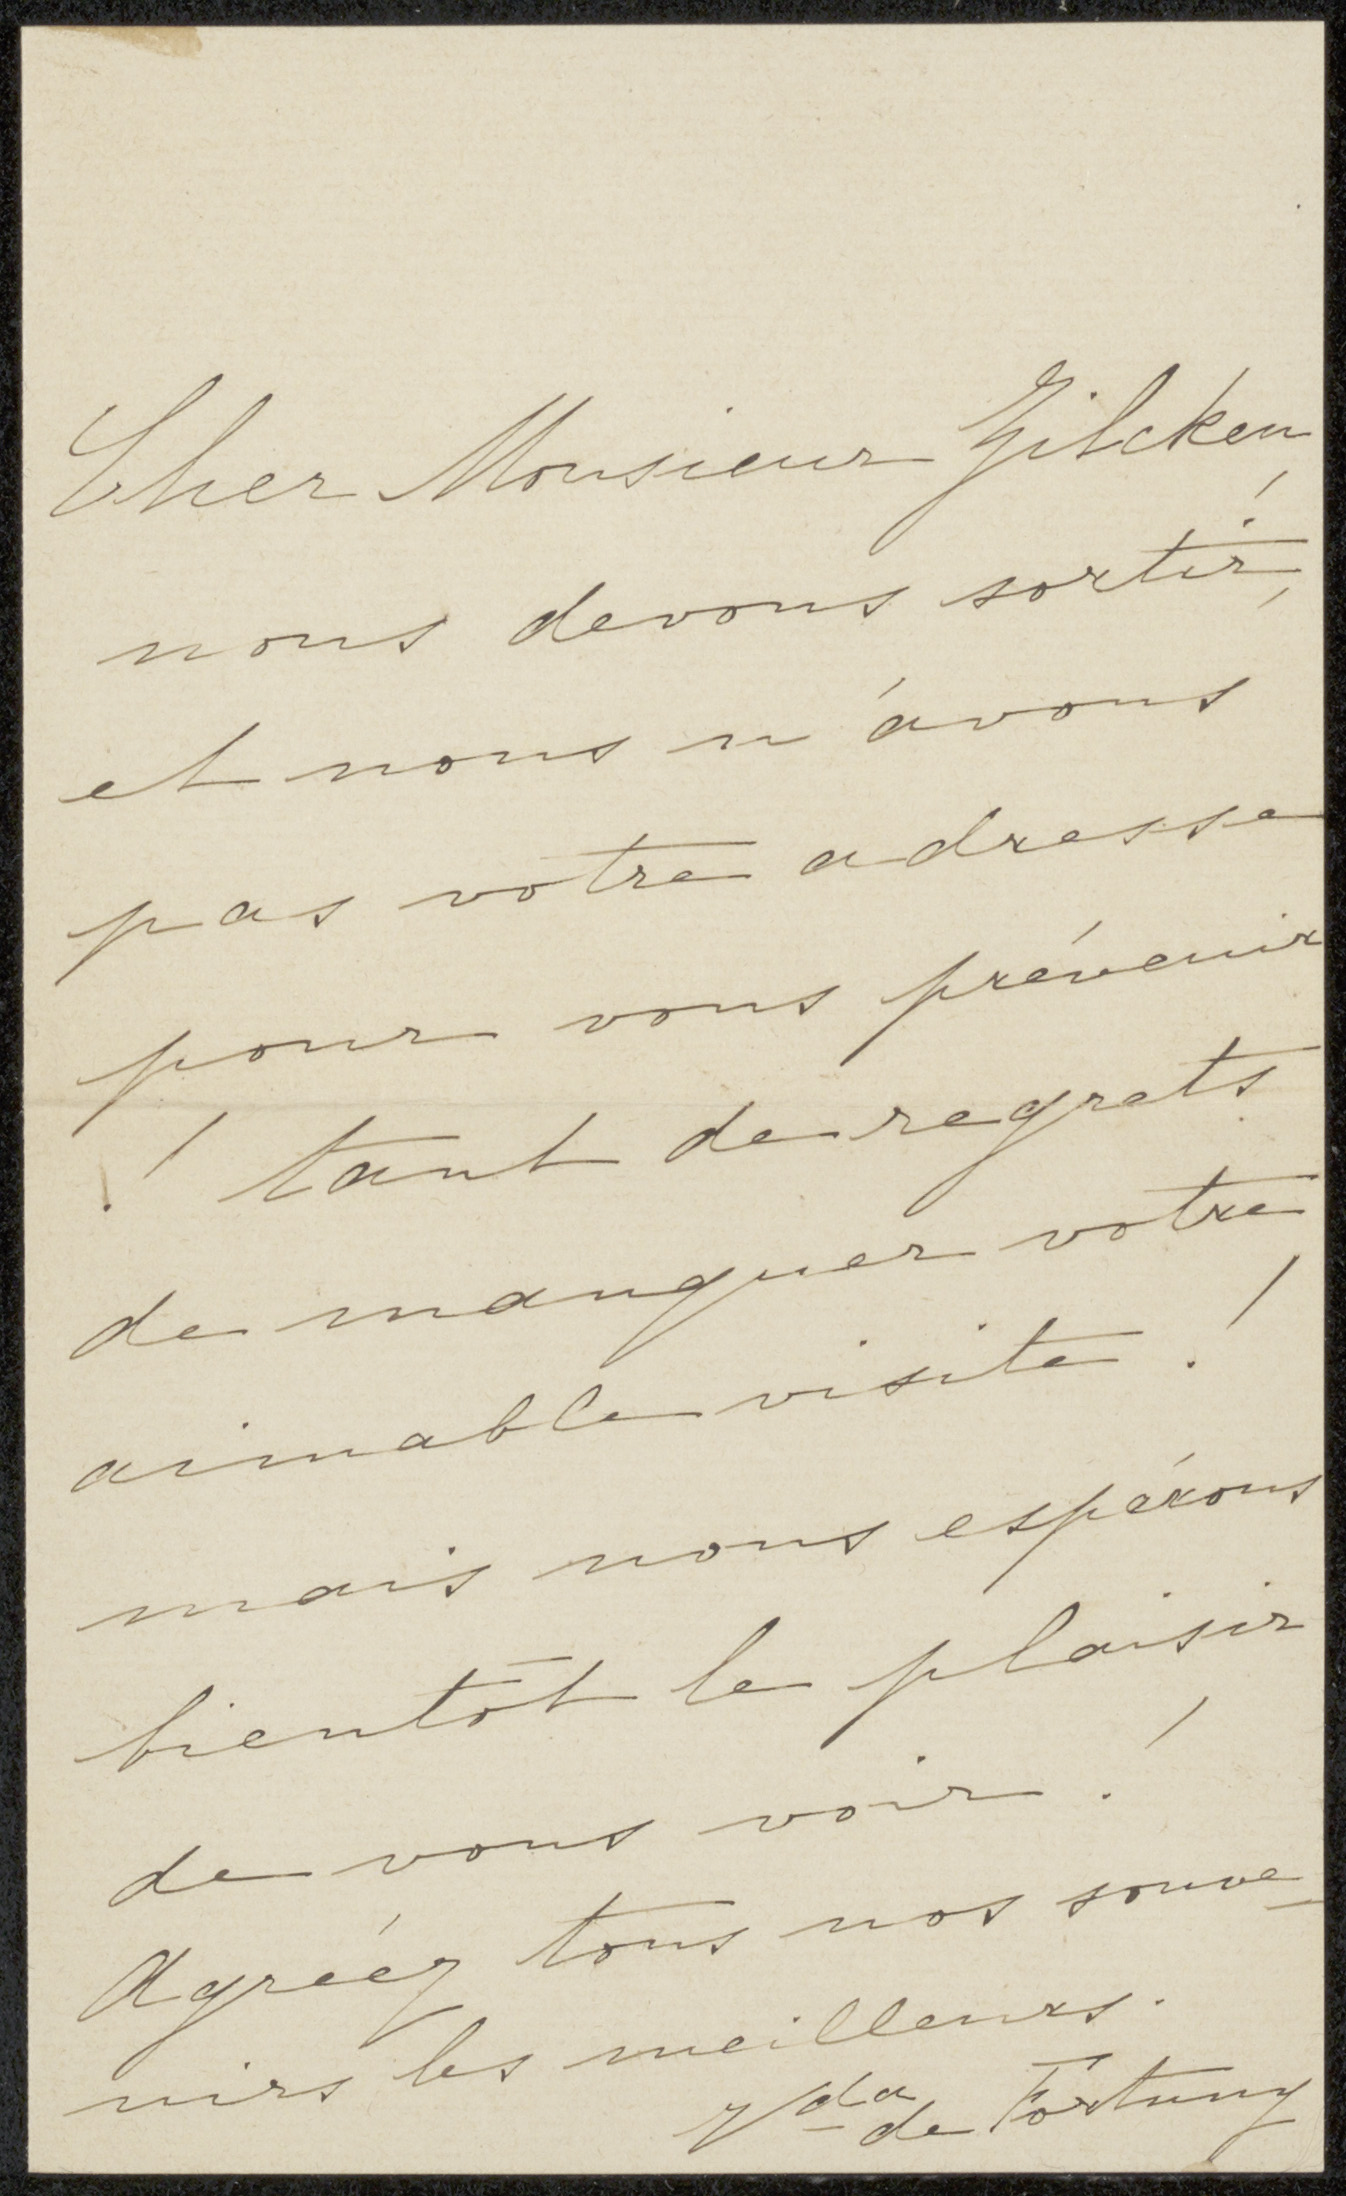 Cher Monsieur Zilcken!
nous devons sortir,
et nous n'avons
pas votre adresse
pour vous prévenir
! tant de regrets
de manquer votre
aimable visite!
mais nous espérons
bientôt le plaisir
de vous voir!
Agréez tous nos souve-
nirs les meilleurs.
Vda de Fortuny